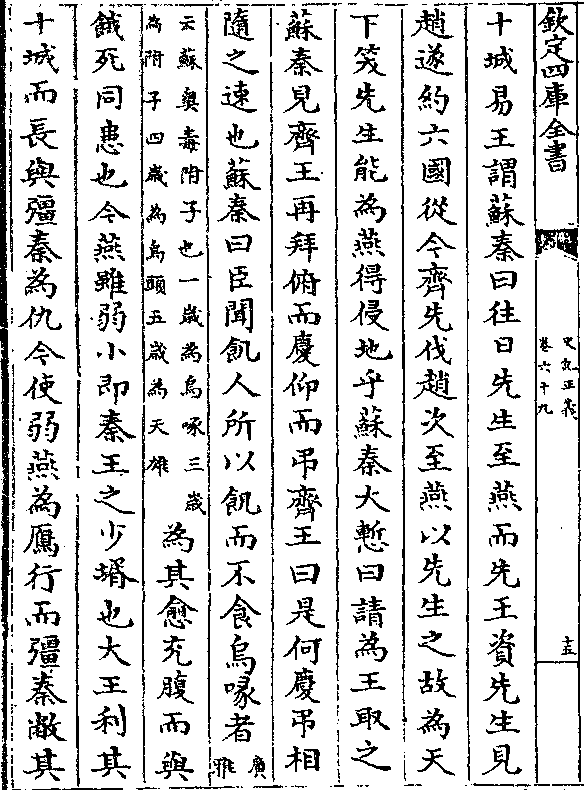 欽定四庫全書
史記正義
卷六十九
十五
十城易王謂蘇秦曰往日先生至燕而先王資先生見
趙遂約六國從今齊先伐趙次至燕以先生之故為天
下笑先生能為燕得侵地乎蘇秦大慙曰請為王取之
蘇秦見齊王再拜俯而慶仰而吊齊王曰是何慶吊相
隨之速也蘇秦曰臣聞飢人所以飢而不食烏喙者廣雅
云蘇奧毒附子也一歲為烏啄三歲
為附子四歲為烏頭五歲為天雄
為其愈充腹而與
餓死同患也今燕雖弱小即秦王之少壻也大王利其
十城而長與彊秦為仇今使弱燕為鴈行而彊秦敝其